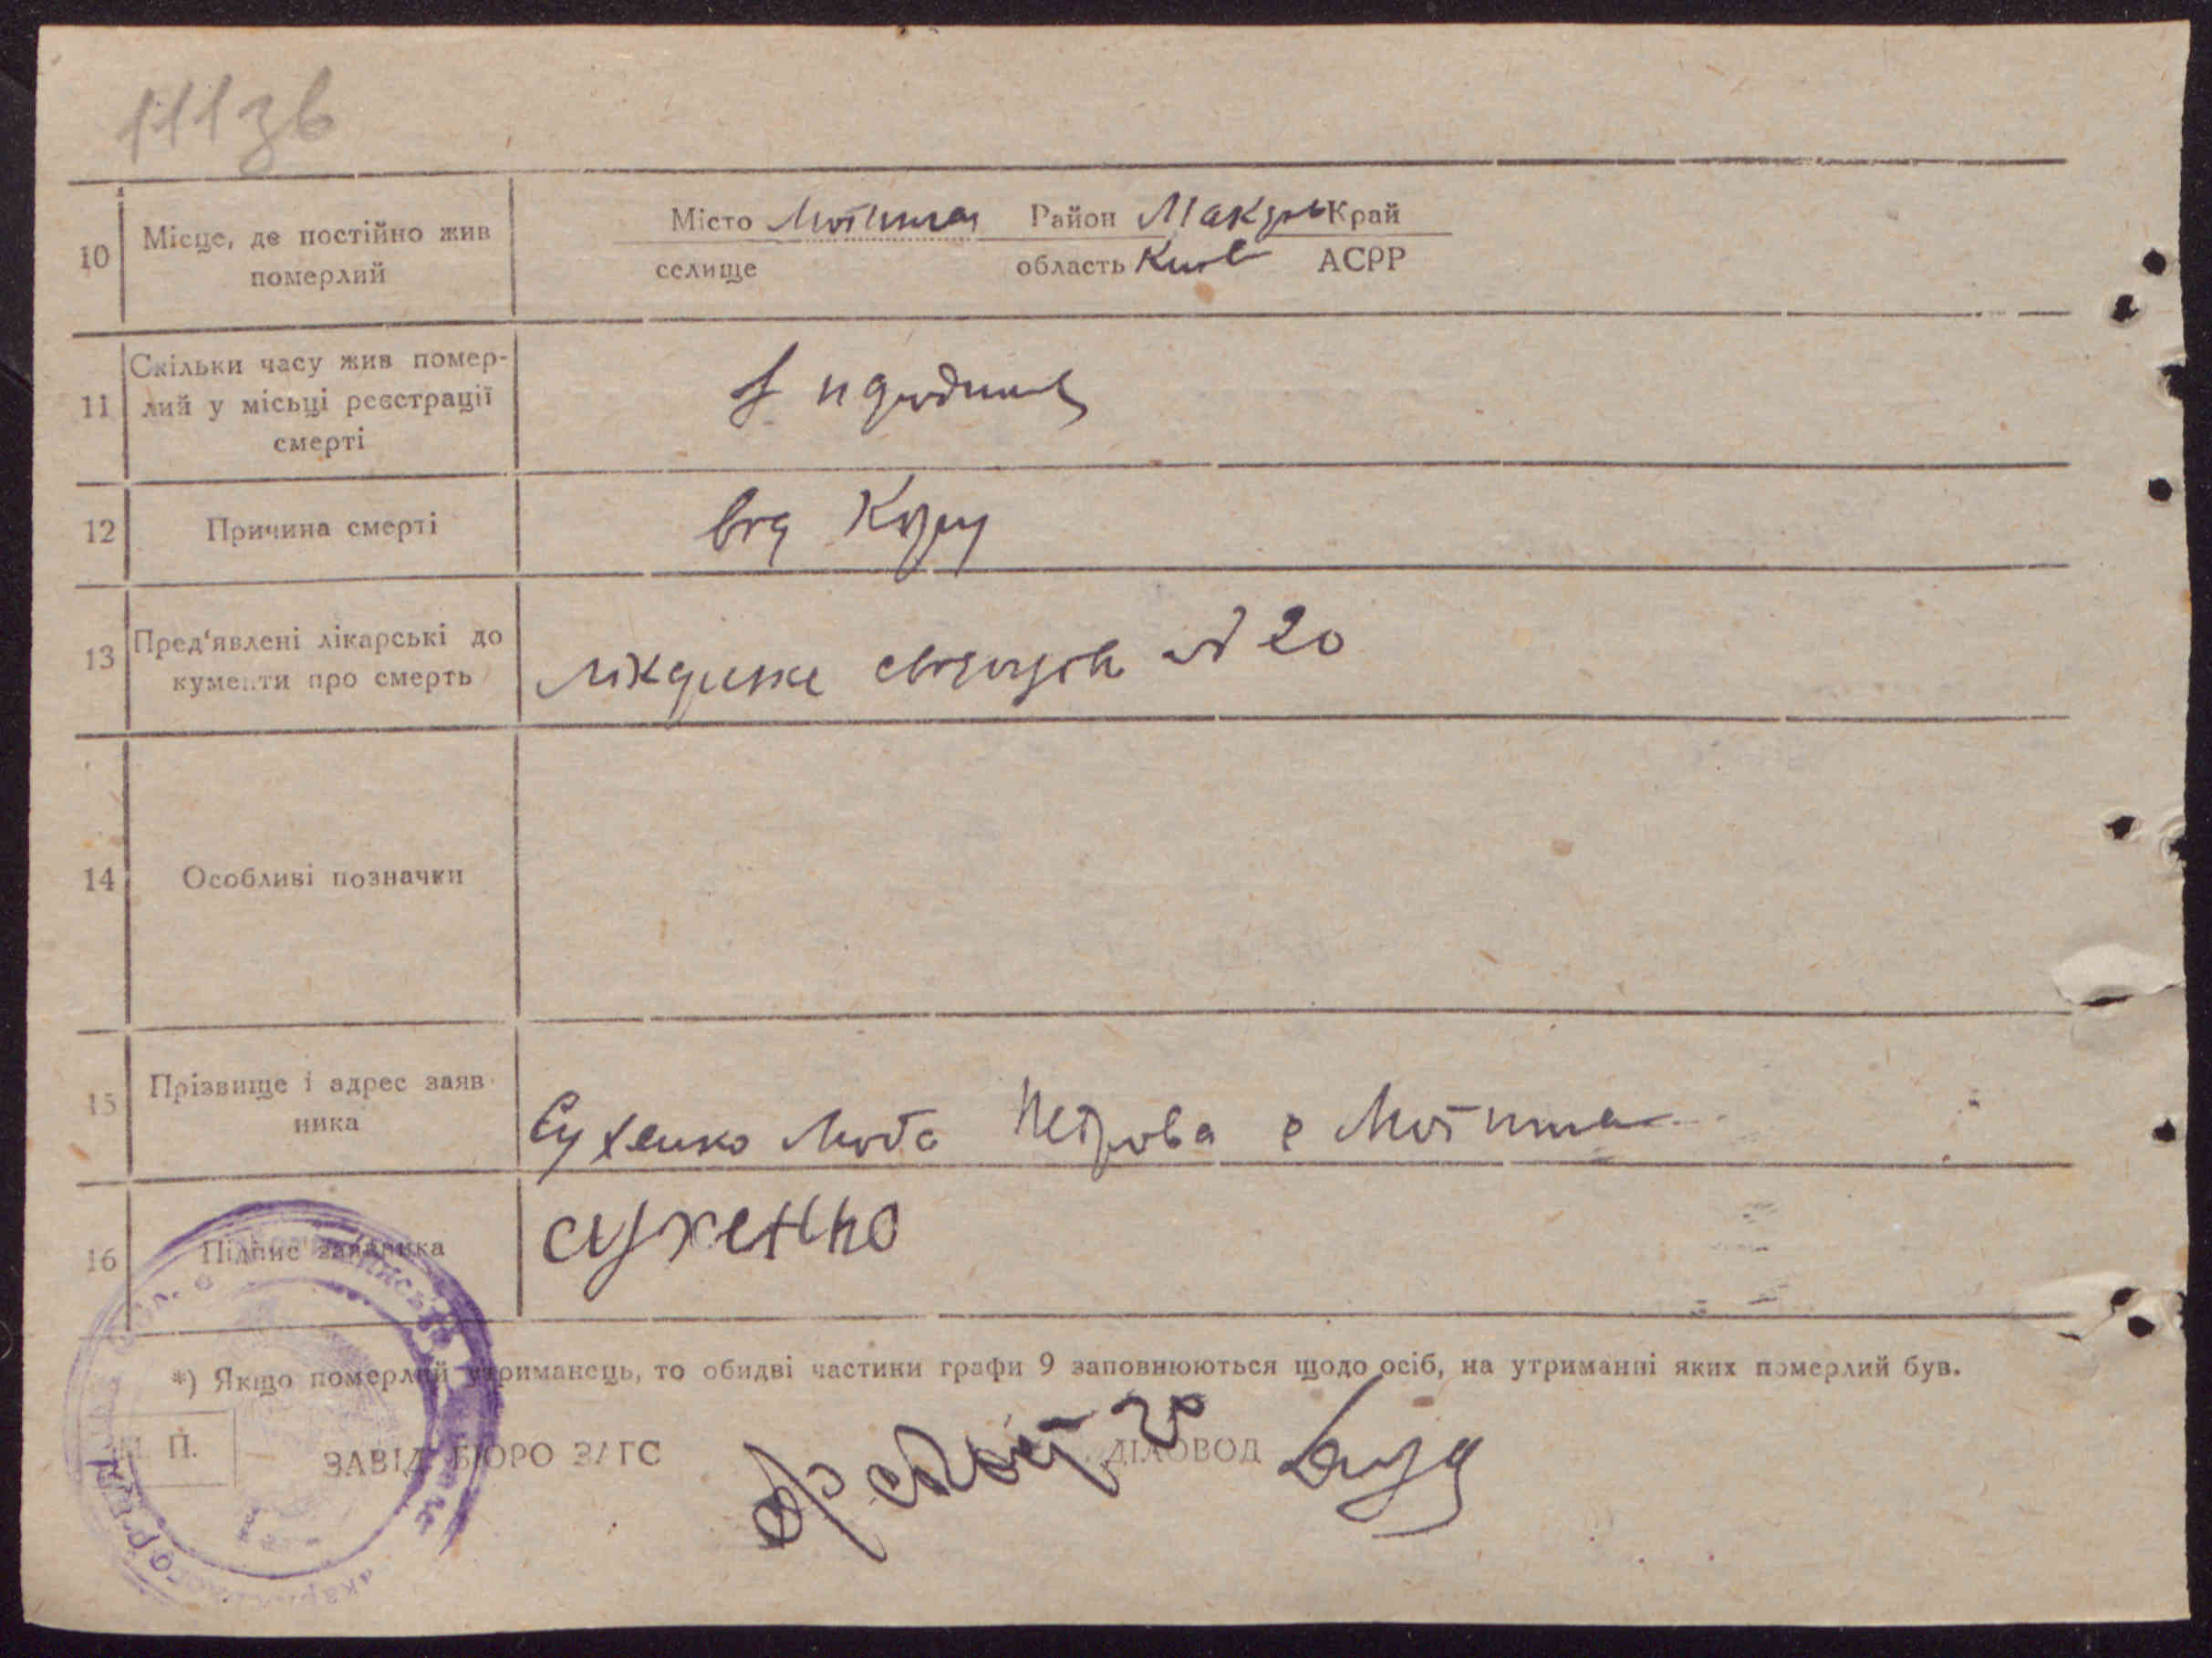 111зв
10 Місце, де постійно жив померлий
Місто Мотижин Район Макар Край
селище область Київ АСРР
11 Скільки часу жив помер-
лий у місьці реєстрації
смерті
з народження
12 Причина смерті
від Кору
13 Пред'явлені лікарські до
кументи про смерть
лікарське № 20
14 Особливі позначки
15 Прізвище і адрес заяв
ника
Сухенко Люба Петрова с Мотижин
16 Підпис заявника
сухенко
*) Якщо померлий утриманець, то обидві частини графи 9 заповнюються щодо осіб, на утриманні яких померлий був.
М. П.
ЗАВІД. БЮРО ЗАГС
ДІЛОВОД